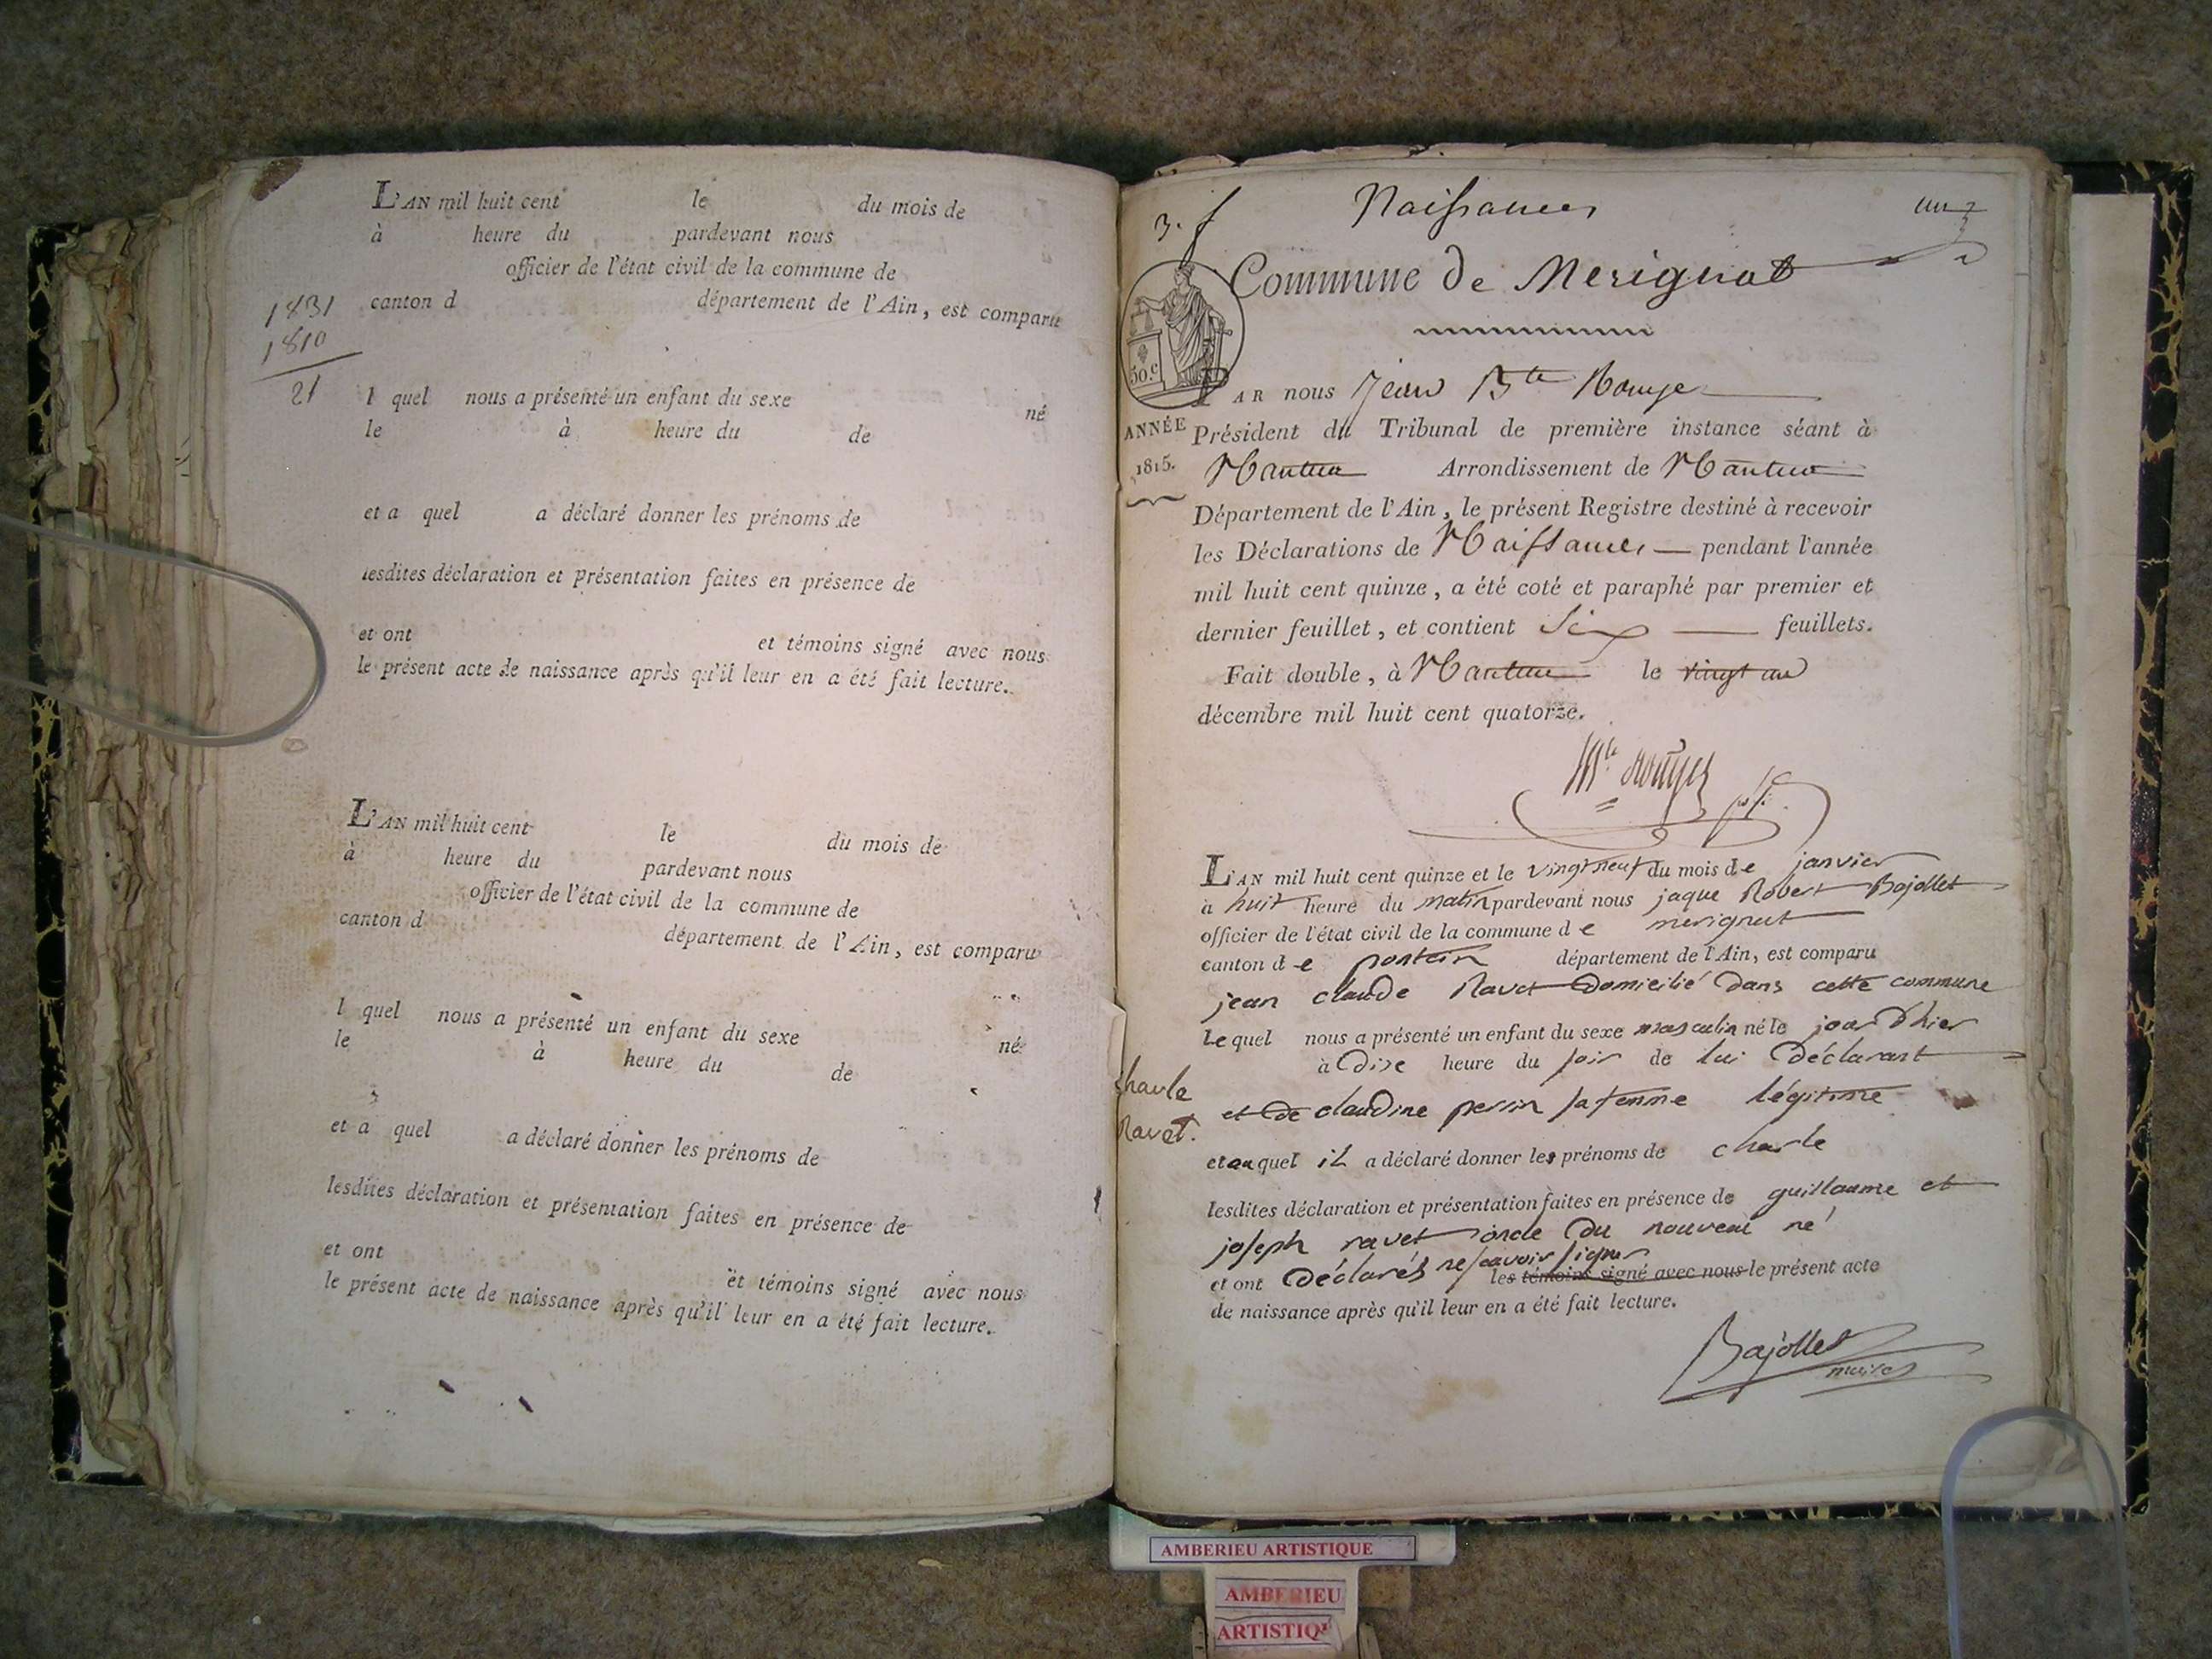 L'AN mil huit cent le du mois de
à heure du pardevant nous
officier de l'état civil de la commune de
canton d département de l'Ain, est comparu
1831
1810
21
l quel nous a présenté un enfant du sexe né
le à heure du de
et a quel a déclaré donner les prénoms de
lesdites déclaration et présentation faites en présence de
et ont et témoins signé avec nous
le présent acte de naissance après qu'il leur en a été fait lecture.
L'AN mil huit cent le du mois de
à heure du pardevant nous
officier de l'état civil de la commune de
canton d département de l'Ain, est comparu
l quel nous a présenté un enfant du sexe né
le à heure du de
et a quel a déclaré donner les prénoms de
lesdites déclaration et présentation faites en présence de
et ont et témoins signé avec nous
le présent acte de naissance après qu'il leur en a été fait lecture.
3. f Naissances
Commune de Merignat
50.c
ANNÉE
1815.
PAR nous Jean Bte Rouyer
Président du Tribunal de première instance séant à
Nantua Arrondissement de Nantua
Département de l'Ain, le présent Registre destiné à recevoir
les Déclarations de Naissances pendant l'année
mil huit cent quinze, a été coté et paraphé par premier et
dernier feuillet, et contient Six feuillets.
Fait double, à Nantua le vingt un
décembre mil huit cent quatorze.
L'AN mil huit cent quinze et le vingt neuf du mois de janvier
à huit heure du matin pardevant nous jaque Robert Bajollet
officier de l'état civil de la commune de merignat
canton de poncin département de l'Ain, est comparu
jean claude Ravet Domicilié Dans cette commune
Le quel nous a présenté un enfant du sexe masculin né le jour D'hier
à Dixe heure du soir de lui Déclarant
et De claudine perrin sa femme légitime
charle
Ravet.
et au quel il a déclaré donner les prénoms de charle
lesdites déclaration et présentation faites en présence de guillaume et
joseph ravet oncle Du nouveau né
et ont Déclarés ne scavoir signer les témoins signé avec nous le présent acte
de naissance après qu'il leur en a été fait lecture.
Bajollet
maire
AMBERIEU ARTISTIQUE
AMBERIEU
ARTISTIQ